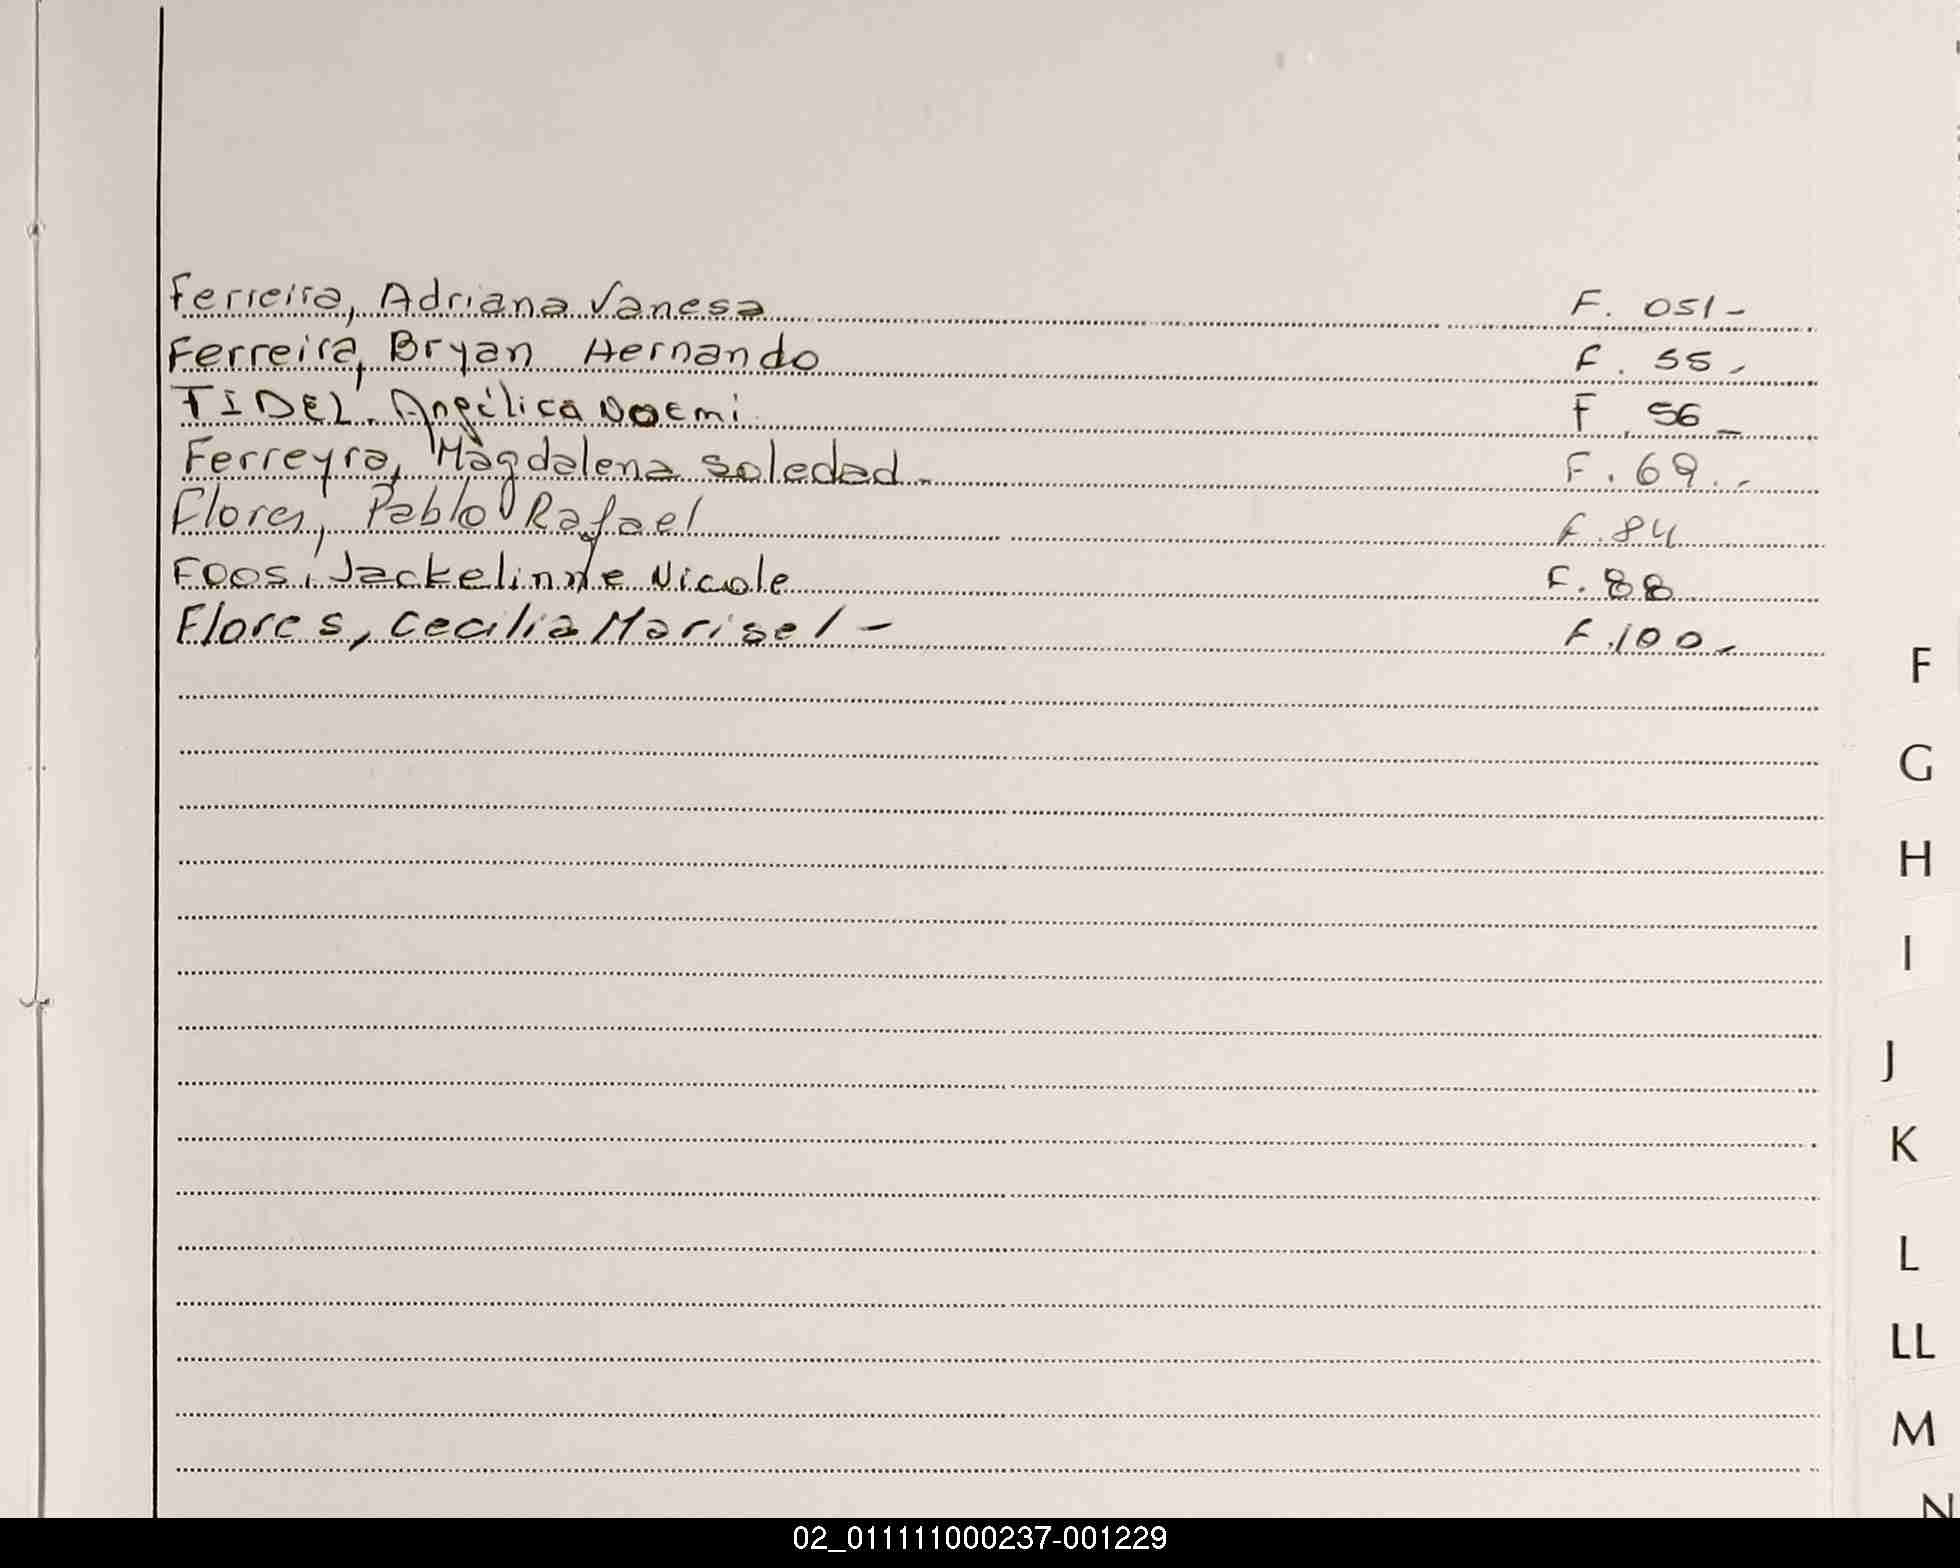 Ferreira, Adriana Vanesa F. 051-
Ferreira, Bryan Hernando F. 55-
FIDEL. Angélica Noemi F. 56-
Ferreyra, Magdalena Soledad- F. 69.-
Flores, Pablo Rafael F. 84
Foos, Jackelinne Nicole F. 88
Flores, Cecilia Marisel- F. 100-
F
G
H
I
J
K
L
LL
M
N
02_011111000237-001229